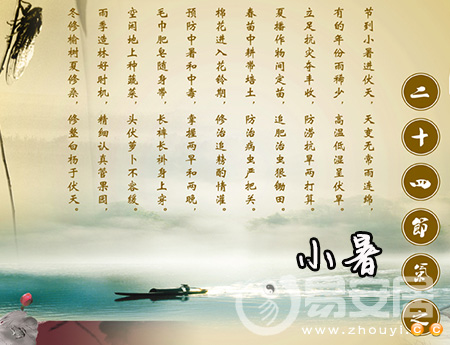 二十四節氣之
小暑
节到小暑进伏天，天变无常雨连绵，
有的年份雨稀少，高温低湿呈伏旱。
立足抗灾夺丰收，防涝抗旱两打算。
夏播作物间定苗，追肥治虫狠锄田。
春苗中耕带培土，防治病虫严把关。
棉花进入花铃期，修治追榜酌情灌。
预防中暑和中毒，掌握两早和两晚，
毛巾肥皂随身带，长裤长褂身上穿。
空闲地上种蔬菜，头伏萝卜不容缓。
雨季造林好时机，精细认真管果园，
冬修榆树夏修桑，修整白杨于伏天。
易安居
www.zhouyi.cc